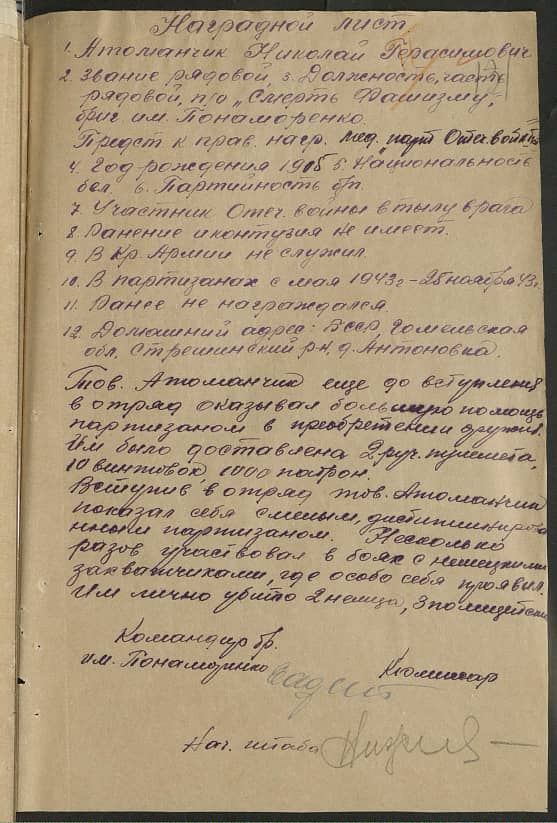 Наградной лист
1. Атоманчик Николай Герасимович
2. Звание рядовой, 3. Должность, часть
рядовой, п/о "Смерть Фашизму",
бриг. им. Понаморенко.
Предст к прав. нагр. мед. "парт Отеч. войны"
4. Год рождения 1905 5. Национальность
бел. 6. Партийность б/п.
7. Участник Отеч. войны в тылу врага
8. Ранение и контузия не имеет.
9. В Кр. Армии не служил.
10. В партизанах с мая 1943г - 25 ноября 43г.
11. Ранее не награждался.
12. Домашний адрес: БССР, Гомельская
обл. Стрешинский р-н, д. Антоновка.
Тов. Атоманчик еще до вступления
в отряд оказывал большую помощь
партизаном в преобретении оружия.
Им было доставлена 2 руч. пулемета,
10 винтовок, 1000 патрон.
Вступив в отряд тов. Атоманчик
показал себя смелым, дисциплинирова
нным партизаном. Несколько
разов участвовал в боях с немецкими
захватчиками, где особо себя проявил.
Им лично убито 2 немца, 3 полицейских
Командир бр.
им. Понаморенко Комиссар
Нач. штаба